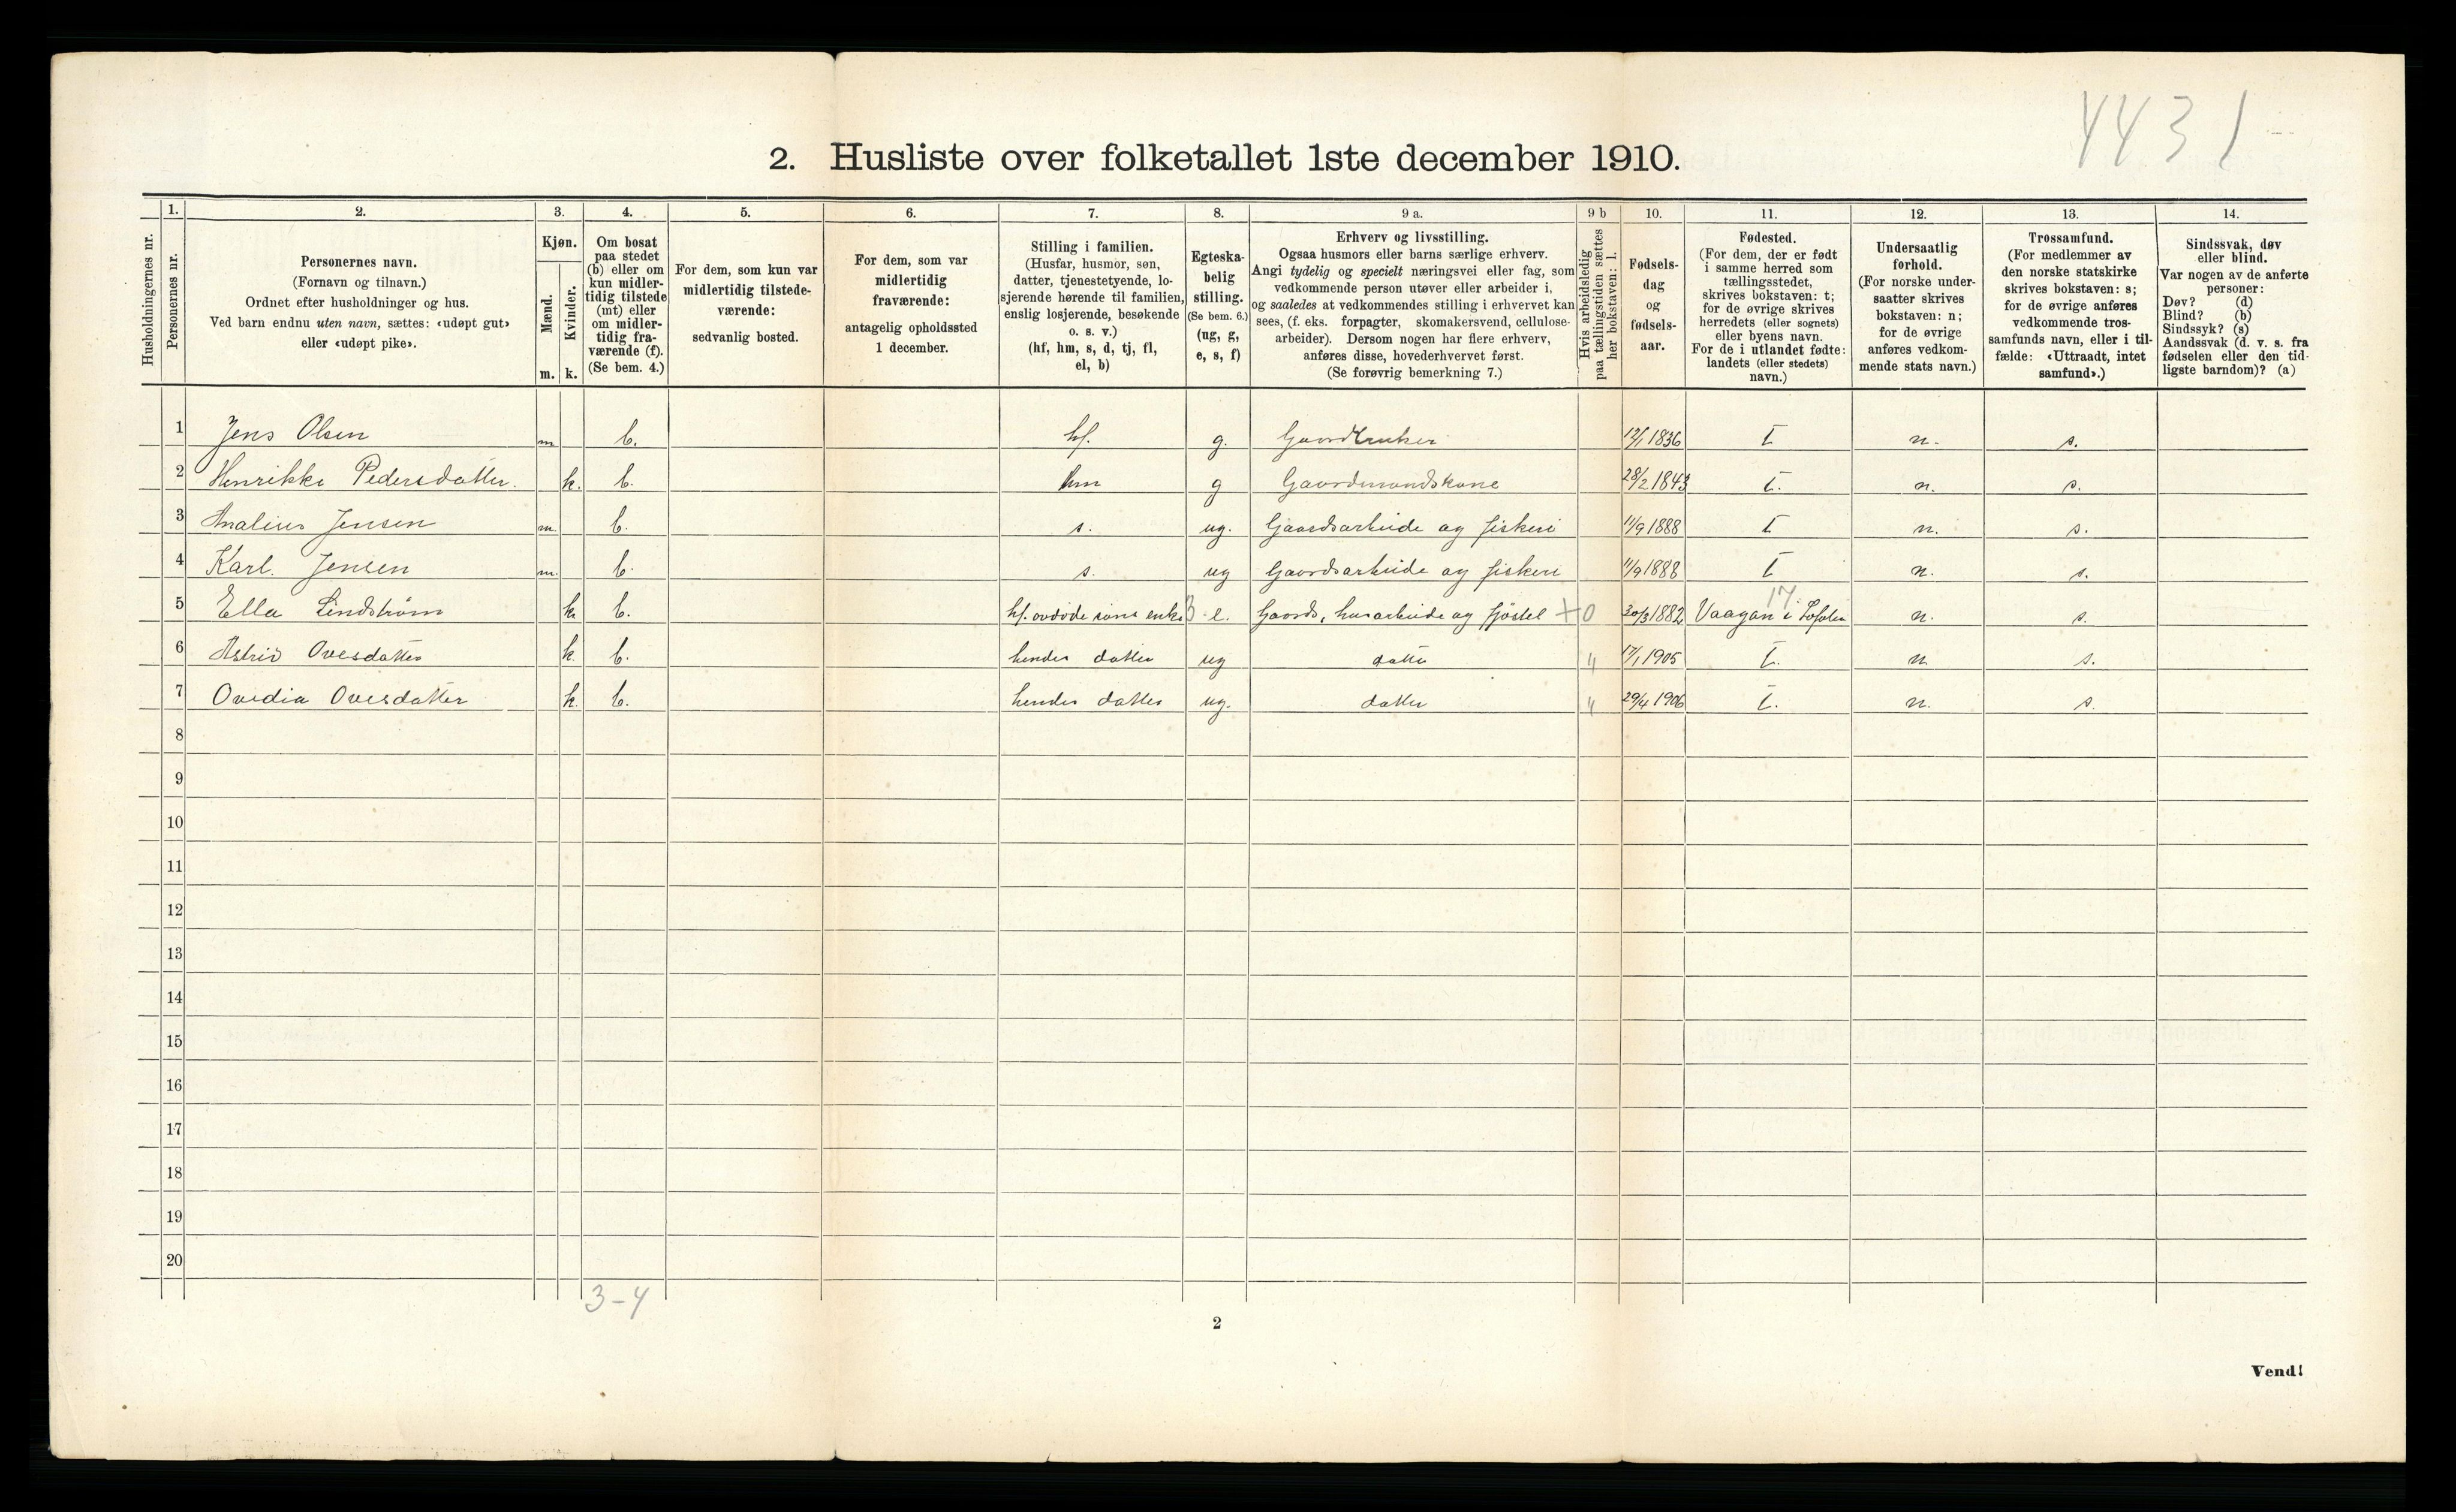 4431
2. Husliste over folketallet 1ste december 1910.
Husholdningernes nr.
1.
Personernes nr.
2.
Personernes navn.
(Fornavn og tilnavn.)
Ordnet efter husholdninger og hus.
Ved barn endnu uten navn, sættes: «udøpt gut»
eller «udøpt pike».
3.
Kjøn.
Mænd.
Kvinder.
m. k.
4.
Om bosat
paa stedet
(b) eller om
kun midler-
tidig tilstede
(mt) eller
om midler-
tidig fra-
værende (f).
(Se bem. 4.)
5.
For dem, som kun var
midlertidig tilstede-
værende:
sedvanlig bosted.
6.
For dem, som var
midlertidig
fraværende:
antagelig opholdssted
1 december.
7.
Stilling i familien.
(Husfar, husmor, søn,
datter, tjenestetyende, lo-
sjerende hørende til familien,
enslig losjerende, besøkende
o. s. v.)
(hf, hm, s, d, tj, fl,
el, b)
8.
Egteska-
belig
stilling.
(Se bem. 6.)
(ug, g,
e, s, f)
9 a.
Erhverv og livsstilling.
Ogsaa husmors eller barns særlige erhverv.
Angi tydelig og specielt næringsvei eller fag, som
vedkommende person utøver eller arbeider i,
og saaledes at vedkommendes stilling i erhvervet kan
sees, (f. eks. forpagter, skomakersvend, cellulose-
arbeider). Dersom nogen har flere erhverv,
anføres disse, hovederhvervet først.
(Se forøvrig bemerkning 7.)
9 b
Hvis arbeidsledig
paa tællingstiden sættes
her bokstaven: l.
10.
Fødsels-
dag
og
fødsels-
aar.
11.
Fødested.
(For dem, der er født
i samme herred som
tællingsstedet,
skrives bokstaven: t;
for de øvrige skrives
herredets (eller sognets)
eller byens navn.
For de i utlandet fødte:
landets (eller stedets)
navn.)
12.
Undersaatlig
forhold.
(For norske under-
saatter skrives
bokstaven: n;
for de øvrige
anføres vedkom-
mende stats navn.)
13.
Trossamfund.
(For medlemmer av
den norske statskirke
skrives bokstaven: s;
for de øvrige anføres
vedkommende tros-
samfunds navn, eller i til-
fælde: «Uttraadt, intet
samfund».)
14.
Sindssvak, døv
eller blind.
Var nogen av de anførte
personer:
Døv? (d)
Blind? (b)
Sindssyk? (s)
Aandssvak (d. v. s. fra
fødselen eller den tid-
ligste barndom)? (a)
1 Jens Olsen m. b. hf. g. Gaardbruker 12/1 1836 t n. s.
2 Henrikke Pedersdatter. k. b. hm g Gaardmandskone 28/2 1843 t. n. s.
3 Analius Jensen m. b. s. ug. Gaardsarbeide og fiskeri 11/9 1888 t n. s.
4 Karl Jensen m. b. s. ug Gaardsarbeide og fiskeri 11/9 1888 t n. s.
17
5 Ella Lindstrøm k. b. hf. avdøde søns enke 3 e. Gaards, husarbeide og fjøstel + 0 30/3 1882 Vaagan i Lofoten n. s.
6 Astrid Ovesdatter k. b. hendes datter ug datter " 17/1 1905 t. n s.
7 Ovedia Ovesdatter k. b. hendes datter ug. datter " 29/4 1906 t. n. s.
8
9
10
11
12
13
14
15
16
17
18
19
20
3-4
2
Vend!